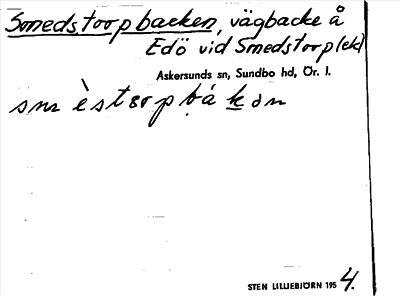 Smedstorpbacken, vägbacke å
Edö vid Smedstorp (ek)
Askersunds sn, Sundbo hd, Ör. l.
smèstɔrpbákən
STEN LILLIEBJÖRN 1954.